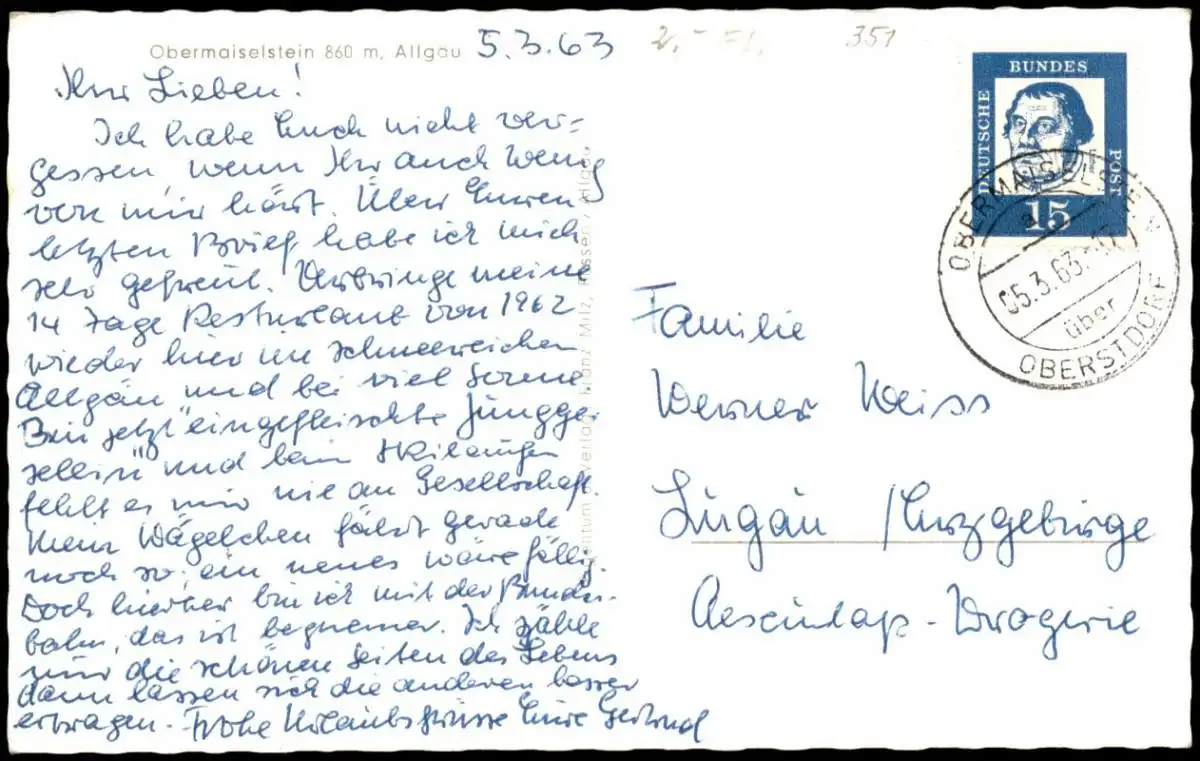 Obermaiselstein 860 m, Allgäu 5.3.63
2,- 351
Ihr Lieben!
Ich habe Euch nicht ver=
gessen, wenn Ihr auch wenig
von mir hört. Über Euren
letzten Brief habe ich mich
sehr gefreut. Verbringe meine
14 Tage Resturlaub von 1962
wieder hier im schneereichen
Allgäu und bei viel Sonne.
Bin jetzt "eingefleischte Jungge-
sellin" und beim Skilaufen
fehlt es mir nie an Gesellschaft.
Mein Wägelchen fährt gerade
noch so; ein neues wäre fällig.
Doch hierher bin ich mit der Bundes-
bahn, das ist bequemer. Ich zähle
nur die schönen Seiten des Lebens
dann lassen sich die anderen besser
ertragen. Frohe Urlaubsgrüsse Eure Gertrud
Franz Milz, Füssen/Allgäu
DEUTSCHE BUNDES POST
15
OBERMAISELSTEIN
a
05.3.63.-17
über
OBERSTDORF
Familie
Werner Weiss
Lugau /Erzgebirge
Aesculap-Drogerie